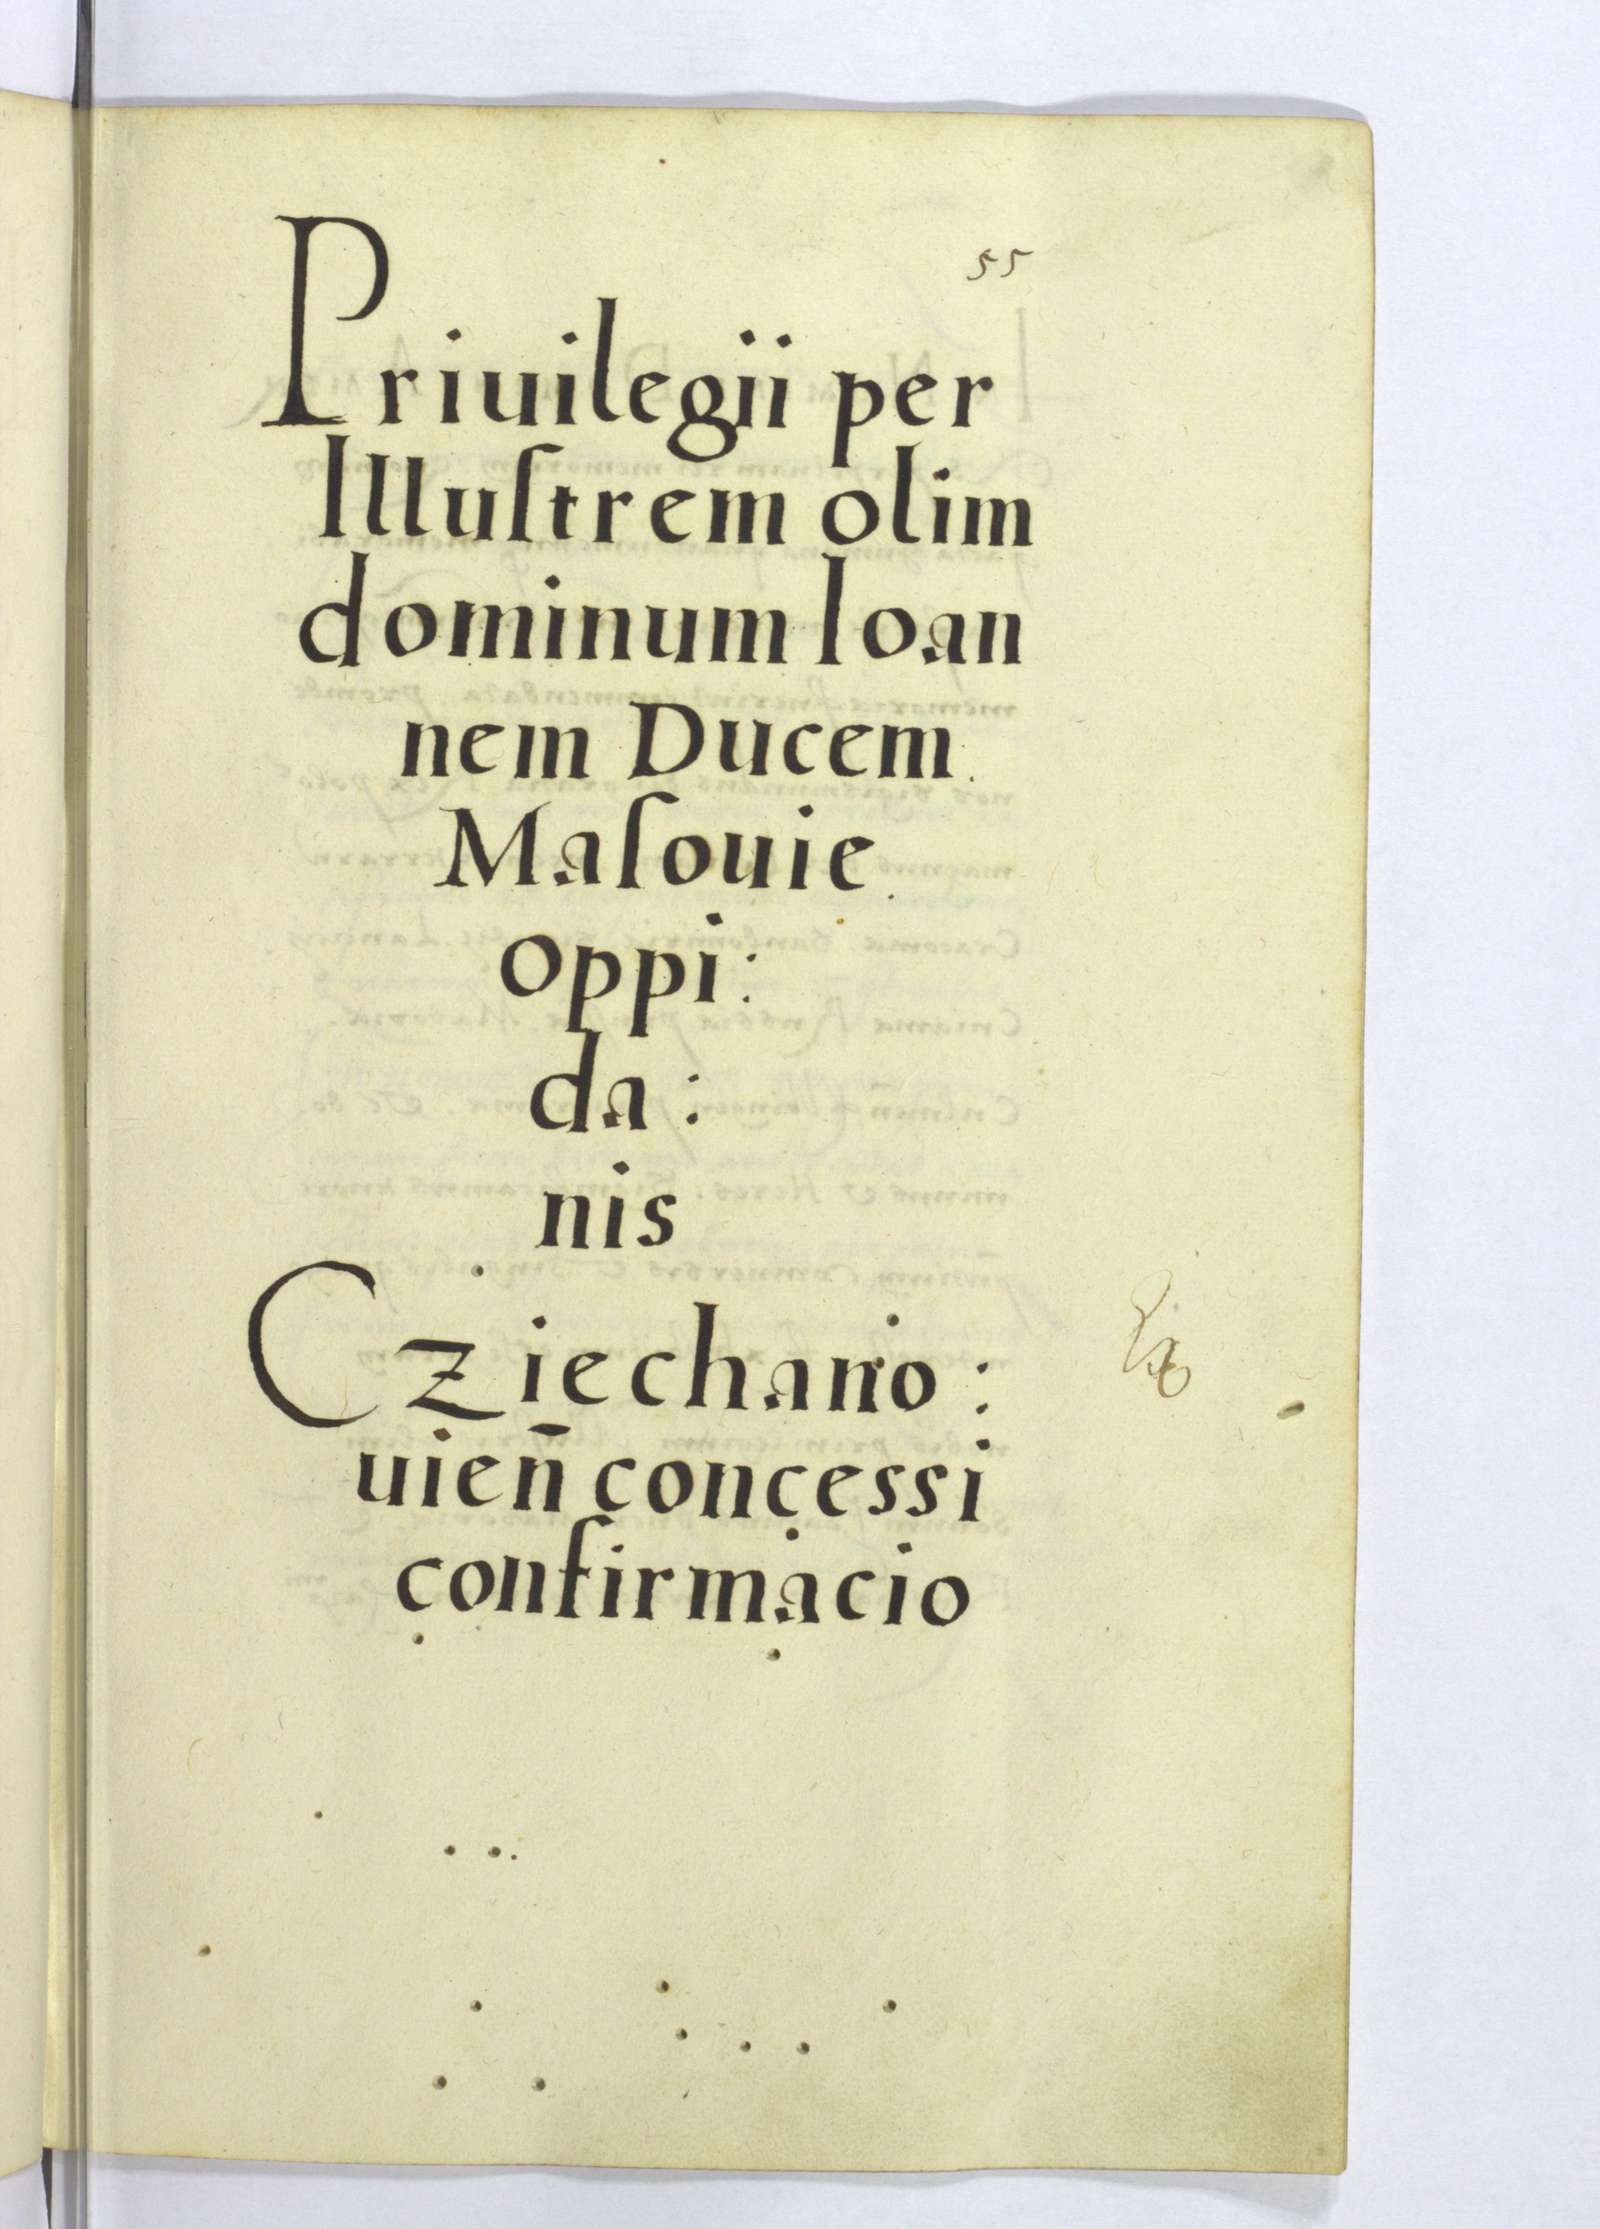 55
Priuilegii per
Illuſtrem olim
dominum Ioan
nem Ducem
Maſouie
oppi:
da:
nis
Cziechano:
uień concessi
confirmacio